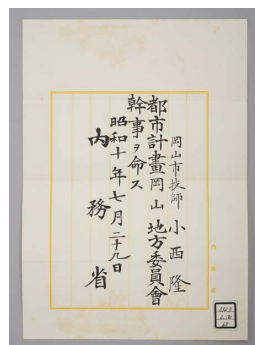 岡山市技師 小西隆
都市計畫岡山地方委員會
幹事ヲ命ス
昭和十年七月二十九日
內務省